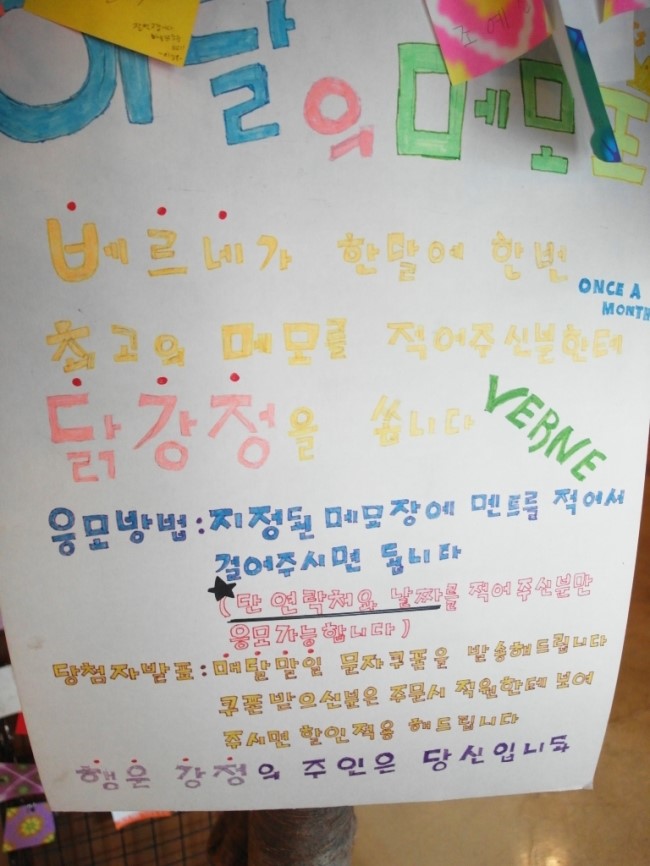 이달의 메모
베르네가 한달에 한번
ONCE A
MONTH
최고의 메모를 적어주신분한테
닭강정을 쏩니다
VERNE
응모방법:지정된 메모장에 멘트를 적어서
걸어주시면 됩니다
(단 연락처와 날짜를 적어주신분만
응모가능합니다)
당첨자발표:매달말일 문자쿠폰을 발송해드립니다
쿠폰받으신분은 주문시 직원한테 보여
주시면 할인적용 해드립니다
행운 강정의 주인은 당신입니다